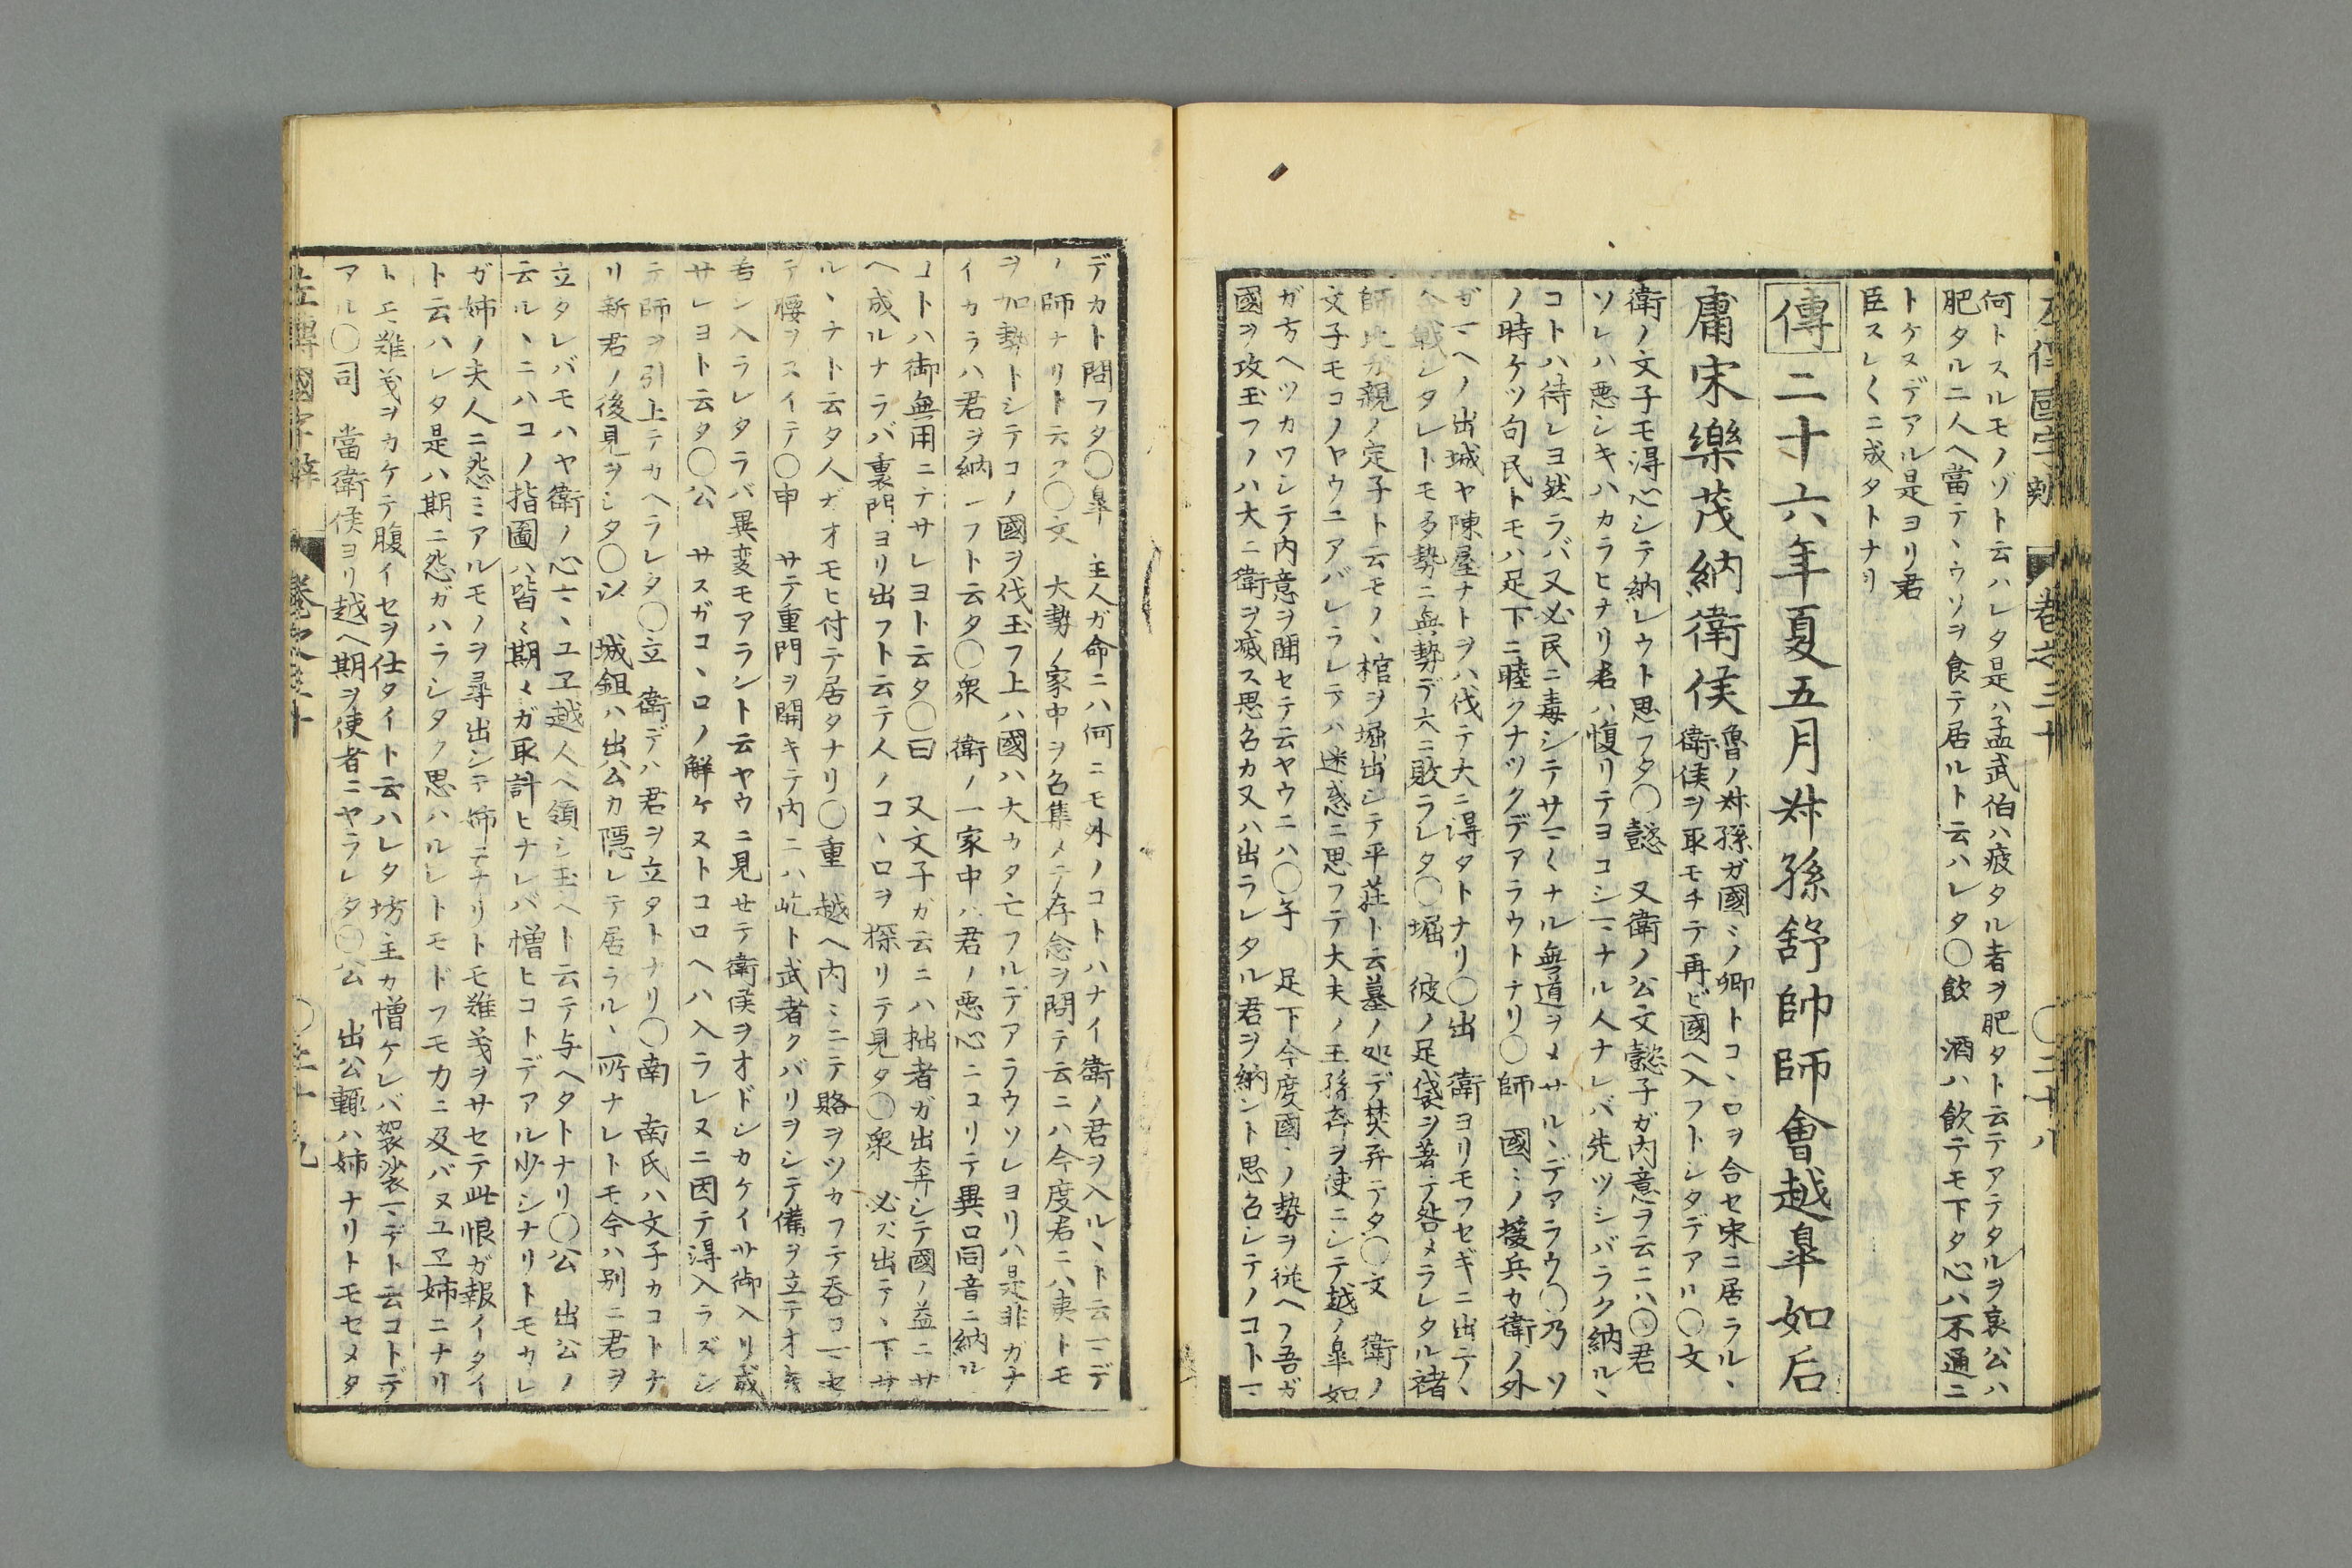 左傳國字辯 卷之三十 〇三十八
何トスルモノゾト云ハレタ是ハ孟武伯ハ疲タル者ヲ肥タト云テアテタルヲ哀公ハ
肥タル二人ヘ當テヽウソヲ食テ居ルト云ハレタ〇飲 酒ハ飲テモ下タ心ハ不通ニ
トケヌデアル是ヨリ君
臣スレ〱ニ成タトナリ
傳二十六年夏五月叔孫舒帥師會越皐如后
庸宋樂茂納衛侯
魯ノ叔孫ガ國ミノ卿トコヽロヲ合セ宋ニ居ラルヽ
衛侯ヲ取モチテ再ビ國ヘ入フトシタデアル〇文
衛ノ文子モ得心シテ納レウト思フタ〇懿 又衛ノ公文懿子ガ内意ヲ云ニハ〇君
ソレハ悪シキハカラヒナリ君ハ愎リテヨコシマナル人ナレバ先ツシバラク納ルヽ
コトハ待レヨ然ラバ又必民ニ毒シテサマ〱ナル無道ヲメサルヽデアラウ〇乃 ソ
ノ時ケツ句民トモハ足下ニ睦クナツクデアラウトナリ〇師 國ミノ援兵カ衛ノ外
ガマヘノ出城ヤ陳屋ナトヲハ伐テ大ニ得タトナリ〇出 衛ヨリモフセギニ出テヽ
合戰シタレトモ多勢ニ無勢デ大ニ敗ラレタ〇堀 彼ノ足袋ヲ著テ咎メラレタル褚
師比ガ親ノ定子ト云モノヽ棺ヲ堀出シテ平莊ト云墓ノ処デ焚弃テタ〇文 衛ノ
文子モコノヤウニアバレラレテハ迷惑ニ思フテ大夫ノ王孫齊ヲ使ニシテ越ノ皐如
ガ方ヘツカワシテ内意ヲ聞セテ云ヤウニハ〇子 足下今度國ミノ勢ヲ従ヘフ吾ガ
國ヲ攻玉フノハ大ニ衛ヲ滅ス思召カ又ハ出ラレタル君ヲ納ント思召レテノコトマ
デカト問フタ〇皐 主人ガ命ニハ何ニモ外ノコトハナイ衛ノ君ヲ入ルヽト云マデ
ノ師ナリト云フ〇文 大勢ノ家中ヲ召集メテ存念ヲ問テ云ニハ今度君ニハ夷トモ
ヲ加勢トシテコノ國ヲ伐玉フ上ハ國ハ大カタ亡フルデアラウソレヨリハ是非ガナ
イカラハ君ヲ納ーフト云タ〇衆 衛ノ一家中ハ君ノ悪心ニコリテ異口同音ニ納ル
コトハ御無用ニテサレヨト云タ〇曰 又文子ガ云ニハ拙者ガ出奔シテ國ノ益ニサ
ヘ成ルナラバ裏門ヨリ出フト云テ人ノコヽロヲ探リテ見タ〇衆 必ス出テヽ下サ
ルヽナト云タ人ガオモヒ付テ居タナリ〇重 越ヘ内ミニテ賂ヲツカフテ呑コマセ
テ腰ヲスイテ〇申 サテ重門ヲ開キテ内ニハ屹ト武者クバリヲシテ備ヲ立テオキ
若シ入ラレタラバ異変モアラント云ヤウニ見セテ衛侯ヲオドシカケイサ御入リ成
サレヨト云タ〇公 サスガコヽロノ解ケヌトコロヘハ入ラレヌニ因テ得入ラズシ
テ師ヲ引上テカヘラレタ〇立 衛デハ君ヲ立タトナリ〇南 南氏ハ文子カコトナ
リ新君ノ後見ヲシタ〇以 城鉏ハ出公カ隠レテ居ラルヽ所ナレトモ今ハ別ニ君ヲ
立タレバモハヤ衛ノ心ニヽユヱ越人ヘ領シ玉ヘト云テ与ヘタトナリ〇公 出公ノ
云ルヽニハコノ指圖ハ皆ミ期メガ取計ヒナレバ憎ヒコトデアル少シナリトモカレ
ガ姉ノ夫人ニ怨ミアルモノヲ尋出シテ姉ニナリトモ難義ヲサセテ此恨ガ報イタイ
ト云ハレタ是ハ期ニ怨ガハラシタク思ハルレトモドフモ力ニ及バヌユヱ姉ニナリ
トモ難義ヲカケテ腹イセヲ仕タイト云ハレタ坊主カ憎ケレバ袈裟マデト云コトデ
アル〇司 當衛侯ヨリ越ヘ期ヲ使者ニヤラレタ〇公 出公輙ハ姉ナリトモセメタ
左傳國字辯 卷之三十 〇三十九